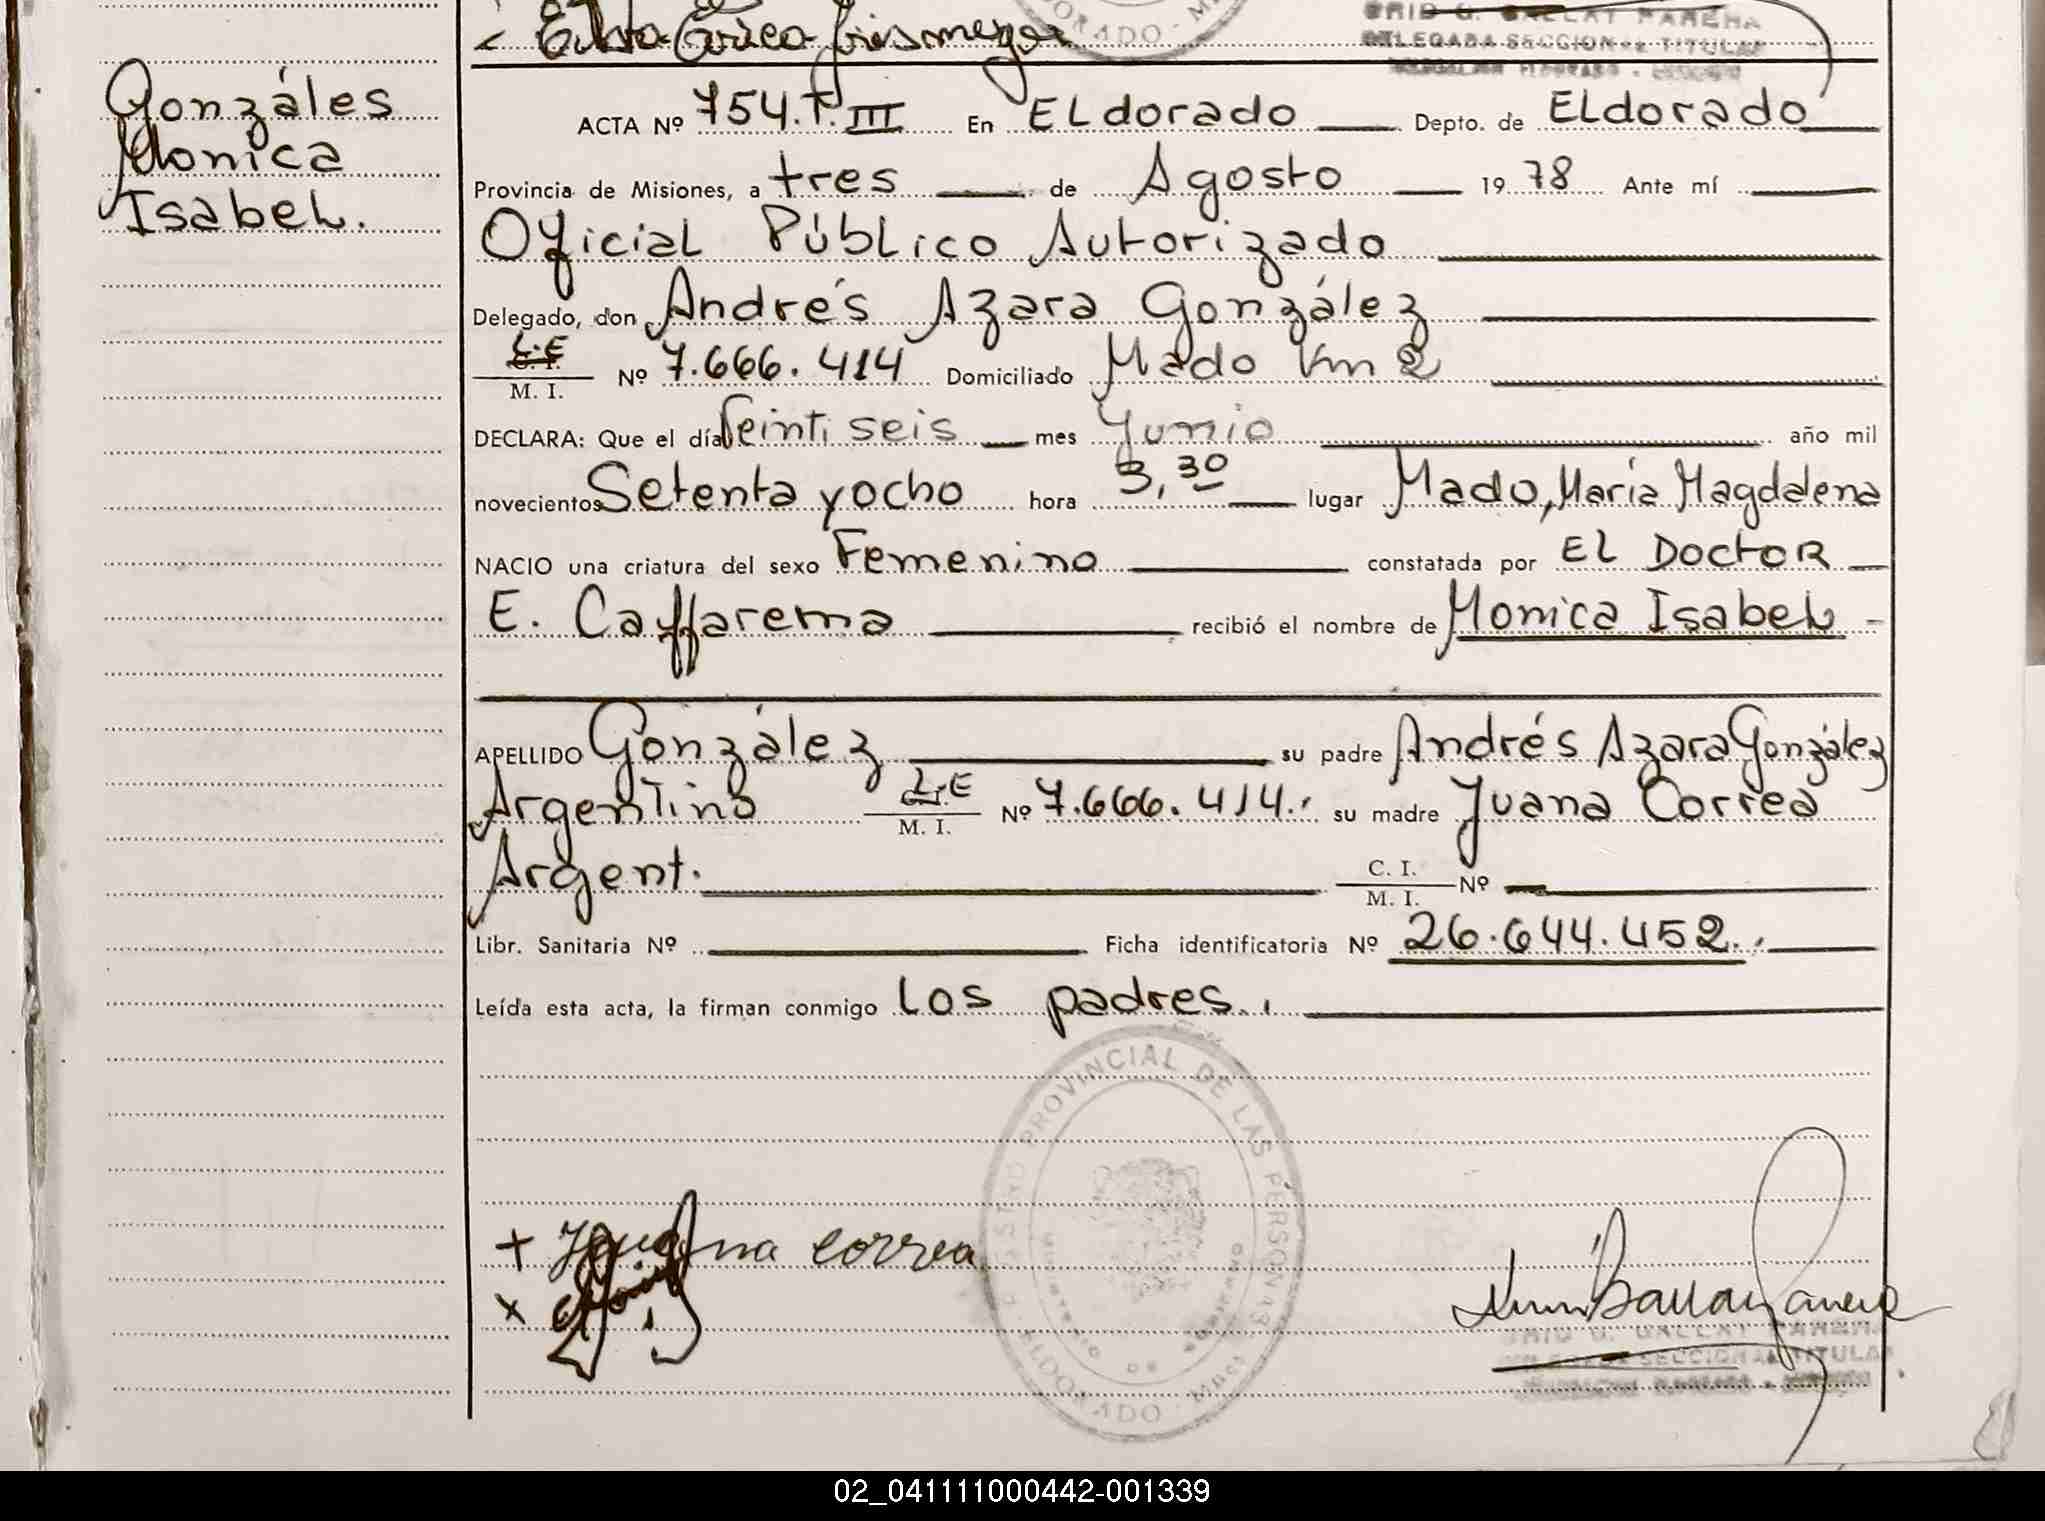 Elsa Erica
Gonzáles
Monica
Isabel.
ACTA Nº 754.T.III En ELdorado Depto. de ELdorado
Provincia de Misiones, a tres de Agosto 1978 Ante mí
Oficial Público Autorizado
Delegado, don Andrés Azara González
L.E M. I. Nº 7.666.414 Domiciliado Mado Km 2
DECLARA: Que el día Veinti seis mes Junio año mil
novecientos Setenta y ocho hora 3,30 lugar Mado, María Magdalena
NACIO una criatura del sexo Femenino constatada por EL DOCTOR
E. Caffarema recibió el nombre de Monica Isabel
APELLIDO González su padre Andrés Azara González
Argentino L.E M. I. Nº 7.666.414. su madre Juana Correa
Argent. C. I. M. I. Nº
Libr. Sanitaria Nº Ficha identificatoria Nº 26.644.452.
Leída esta acta, la firman conmigo los padres.
PROVINCIAL DE LAS PERSONAS
ELDORADO
+ Juana correa
x
SECCIONAL TITULAR
02_041111000442-001339